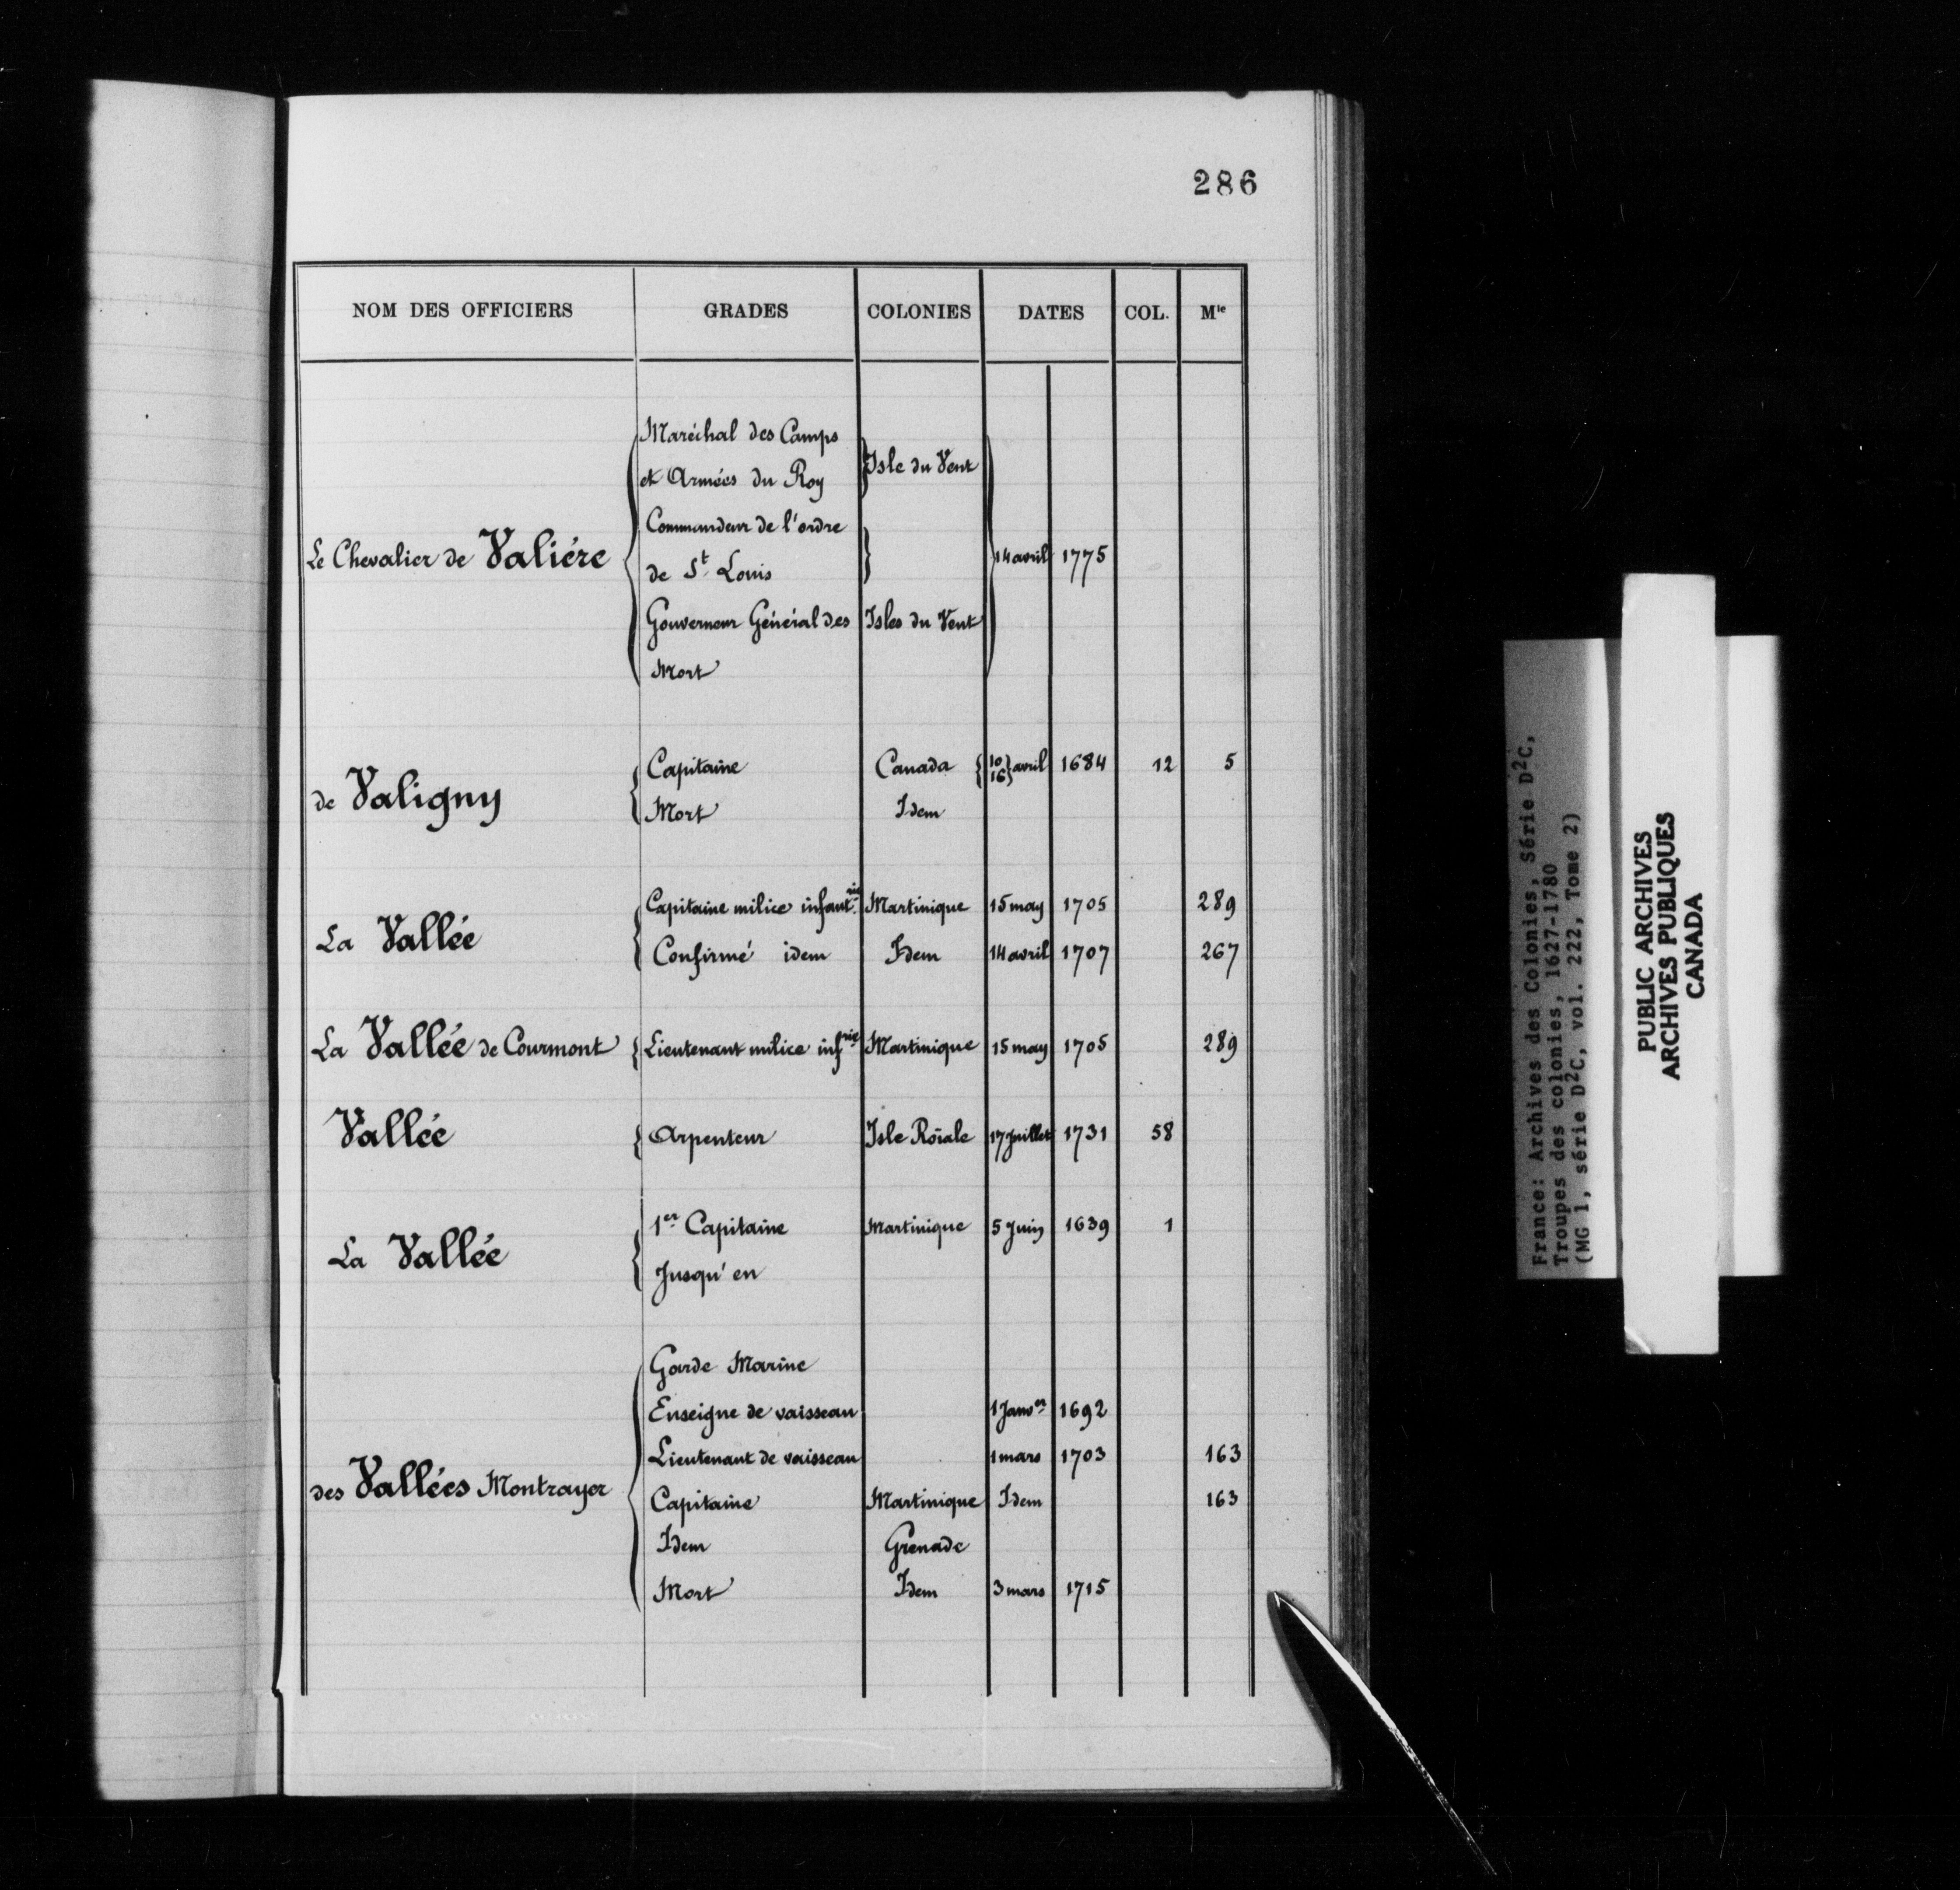 286
NOM DES OFFICIERS GRADES COLONIES DATES COL. Mle
Maréchal des Camps
et Armées du Roy Isle du Vent
Commandeur de l'ordre
Le Chevalier de Valiére 14 avril 1775
de St. Louis
Gouverneur Général des Isles du Vent
Mort
de Valigny Capitaine Canada 10 16 avril 1684 12 5
Mort Idem
La Vallée Capitaine milice infantrie Martinique 15 may 1705 289
Confirmé idem Idem 14 avril 1707 267
La Vallée de Courmont Lieutenant milice infrie Martinique 15 may 1705 289
Vallée Arpenteur Isle Roïale 17 Juillet 1731 58
La Vallée 1er Capitaine Martinique 5 Juin 1639 1
Jusqu'en
Garde Marine
Enseigne de vaisseau 1 Janver 1692
Lieutenant de vaisseau 1 mars 1703 163
des Vallées Montrayer Capitaine Martinique Idem 163
Idem Grenade
Mort Idem 3 mars 1715
France: Archives des Colonies, Série D2C,
Troupes des colonies, 1627-1780
(MG 1, série D2C, vol. 222, Tome 2)
PUBLIC ARCHIVES
ARCHIVES PUBLIQUES
CANADA